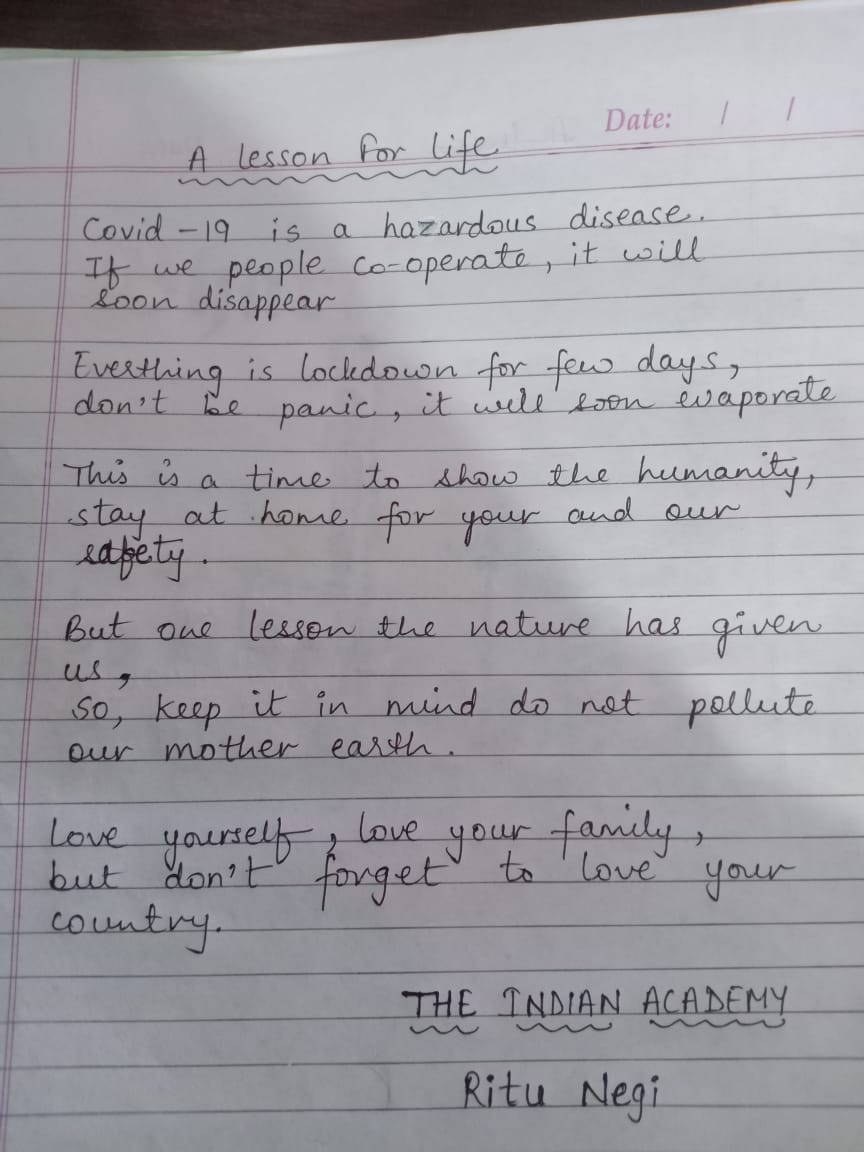 Date: / /
A lesson for life
Covid-19 is a hazardous disease.
If we people co-operate, it will
soon disappear
Everthing is lockdown for few days,
don't be panic, it will soon evaporate
This is a time to show the humanity,
stay at home for your and our
safety.
But one lesson the nature has given
us,
so, keep it in mind do not pollute
our mother earth.
Love yourself, love your family,
but don't forget to love your
country.
THE INDIAN ACADEMY
Ritu Negi